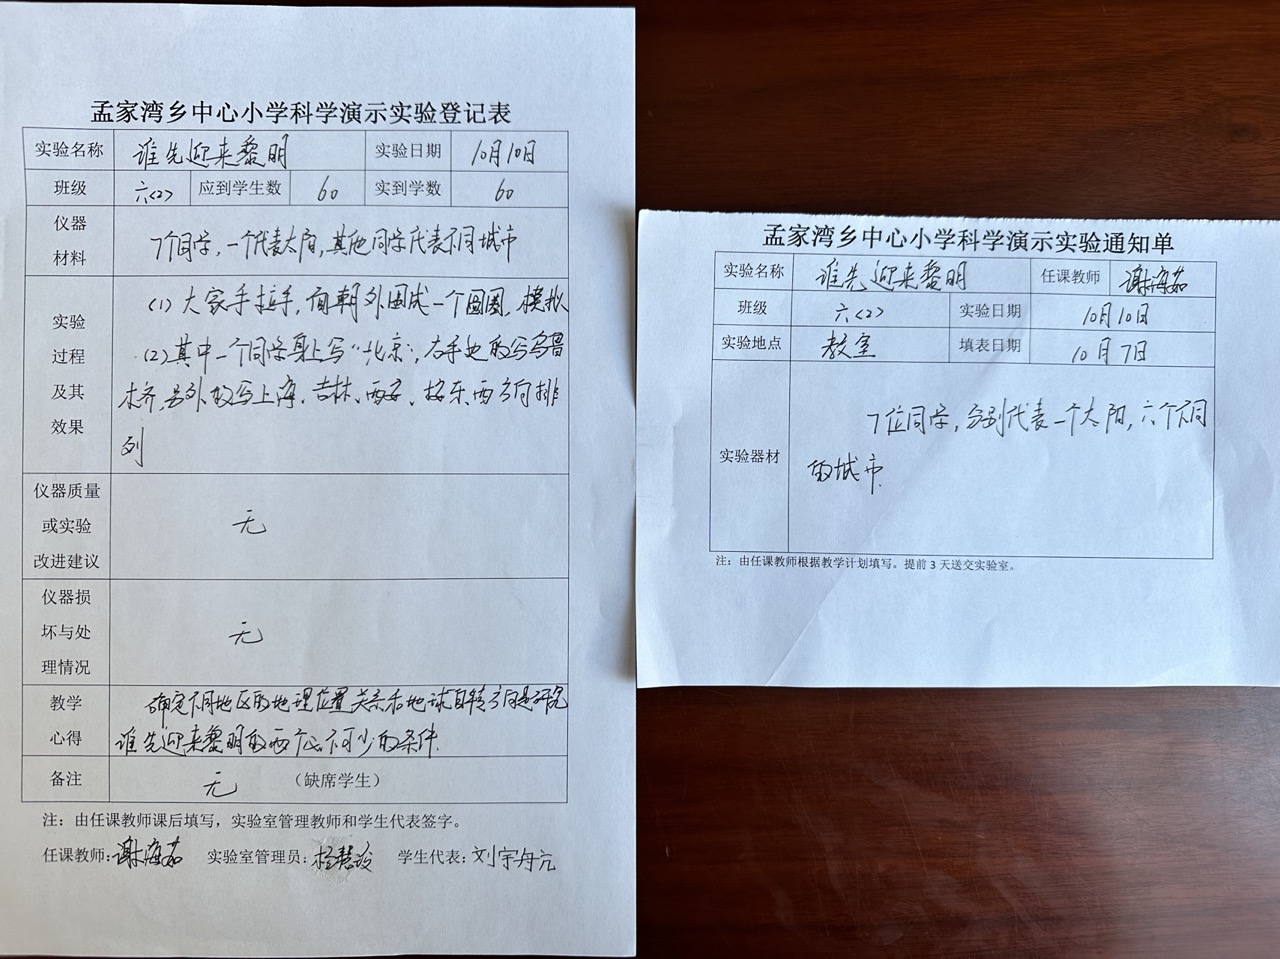 孟家湾乡中心小学科学演示实验登记表
实验名称 谁先迎来黎明 实验日期 10月10日
班级 六(2) 应到学生数 60 实到学数 60
仪器材料 7个同学,一个代表太阳,其他同学代表不同城市
实验过程及其效果
(1)大家手拉手,面朝外围成一个圆圈,模拟
(2)其中一个同学身上写"北京",右手边的写乌鲁
木齐,另外的写上海、吉林、西安、按东西方向排
列
仪器质量或实验改进建议 无
仪器损坏与处理情况 无
教学心得
确定不同地区的地理位置关系和地球自转方向是研究
谁先迎来黎明的两个必不可少的条件.
备注 无 (缺席学生)
注:由任课教师课后填写,实验室管理教师和学生代表签字。
任课教师:谢海茹 实验室管理员:杨慧 学生代表:刘宇舟
孟家湾乡中心小学科学演示实验通知单
实验名称 谁先迎来黎明 任课教师 谢海茹
班级 六(2) 实验日期 10月10日
实验地点 教室 填表日期 10月7日
实验器材
7位同学,分别代表一个太阳,六个不同
的城市.
注:由任课教师根据教学计划填写。提前3天送交实验室。